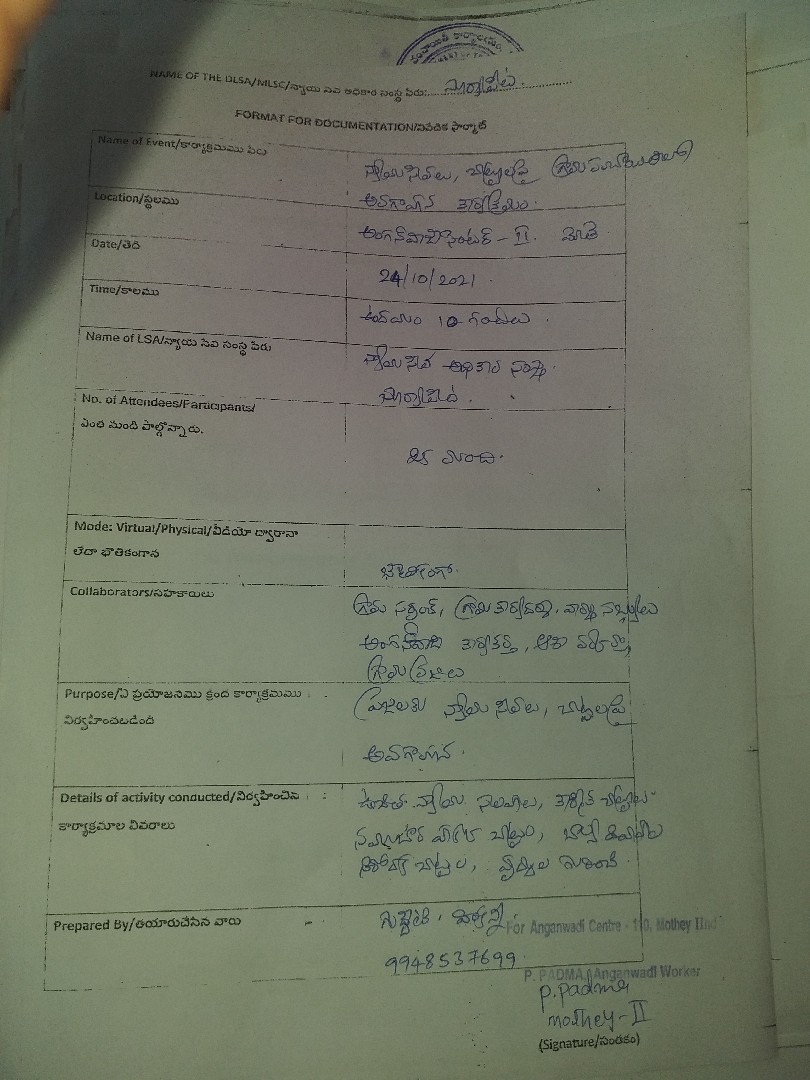 NAME OF THE DLSA/MLSC/న్యాయ సేవ అధికార సంస్థ పేరు:.... సూర్యాపేట.
FORMAT FOR DOCUMENTATION/నివేదిక ఫార్మాట్
Name of Event/కార్యక్రమము పేరు
న్యాయ సేవలు, చట్టాలపై గ్రామ పంచాయితిలో
అవగాహన కార్యక్రమం.
Location/స్థలము
అంగన్‌వాడీ సెంటర్ - II. మోతె
Date/తేది
24/10/2021.
Time/కాలము
ఉదయం 10 గంటలు.
Name of LSA/న్యాయ సేవ సంస్థ పేరు
న్యాయ సేవ అధికార సంస్థ.
సూర్యాపేట.
No. of Attendees/Participants/
ఎంత మంది పాల్గోన్నారు.
మంది.
Mode: Virtual/Physical/వీడియో ద్వారానా
లేదా భౌతికంగాన
భౌతికంగా.
Collaborators/సహకారులు
గ్రామ సర్పంచ్, గ్రామ కార్యదర్శి, వార్డు సభ్యులు
అంగన్‌వాడి కార్యకర్త, ఆశా వర్కర్లు,
గ్రామ ప్రజలు
Purpose/ఏ ప్రయోజనము క్రింద కార్యాక్రమము :
నిర్వహించబడింది
ప్రజలకు న్యాయ సేవలు, చట్టాలపై
అవగాహన.
Details of activity conducted/నిర్వహించిన :
కార్యాక్రమాల వివరాలు
ఉచిత న్యాయ సలహాలు, కార్మిక చట్టాలు
సమాచార హక్కు చట్టం, బాల్య వివాహాల
చట్టాల, వృద్ధుల గురించి.
Prepared By/తయారుచేసిన వారు
9948537699.
For Anganwadi Centre - 110, Mothey IInd
P. PADMA, Anganwadi Worker
P. Padma
mothey-II
(Signature/సంతకం)